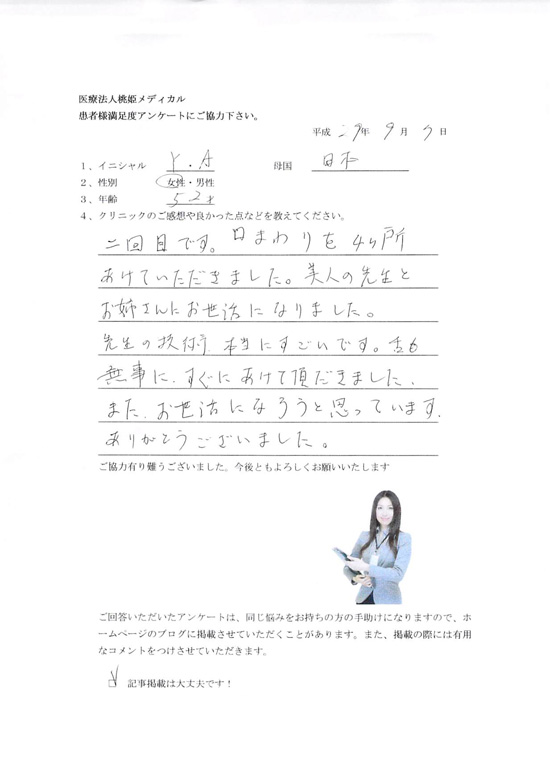 医療法人桃姫メディカル
患者様満足度アンケートにご協力下さい。
平成 29年 9月 5日
1、イニシャル Y.A 母国 日本
2、性別 女性・男性
3、年齢 52才
4、クリニックのご感想や良かった点などを教えてください。
二回目です。口まわりを4ヶ所
あけていただきました。美人の先生と
お姉さんにお世話になりました。
先生の技術、本当にすごいです。舌も
無事に、すぐにあけて頂だきました、
また、お世話になろうと思っています。
ありがとうございました。
ご協力有り難うございました。今後ともよろしくお願いいたします
ご回答いただいたアンケートは、同じ悩みをお持ちの方の手助けになりますので、ホ
ームページのブログに掲載させていただくことがあります。また、掲載の際には有用
なコメントをつけさせていただきます。
記事掲載は大丈夫です！